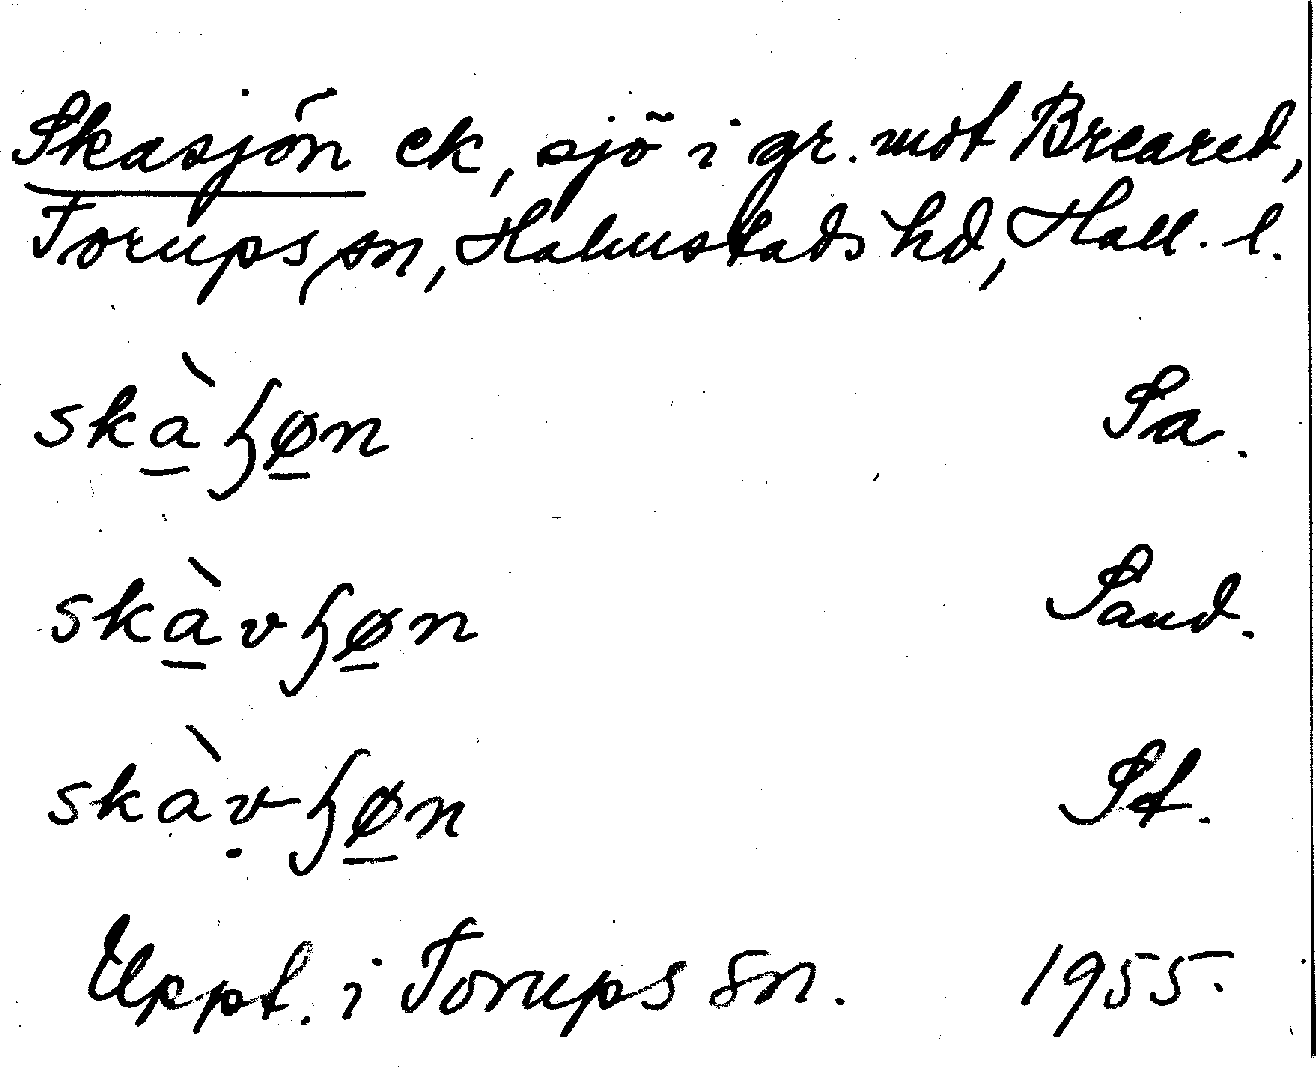 Skasjön ek, sjö i gr. mot Breared,
Torups sn, Halmstads hd, Hall. l.
skàɧøn Sa.
skàvɧøn Sand.
skàṿɧøn St.
Uppt. i Torups sn. 1955.